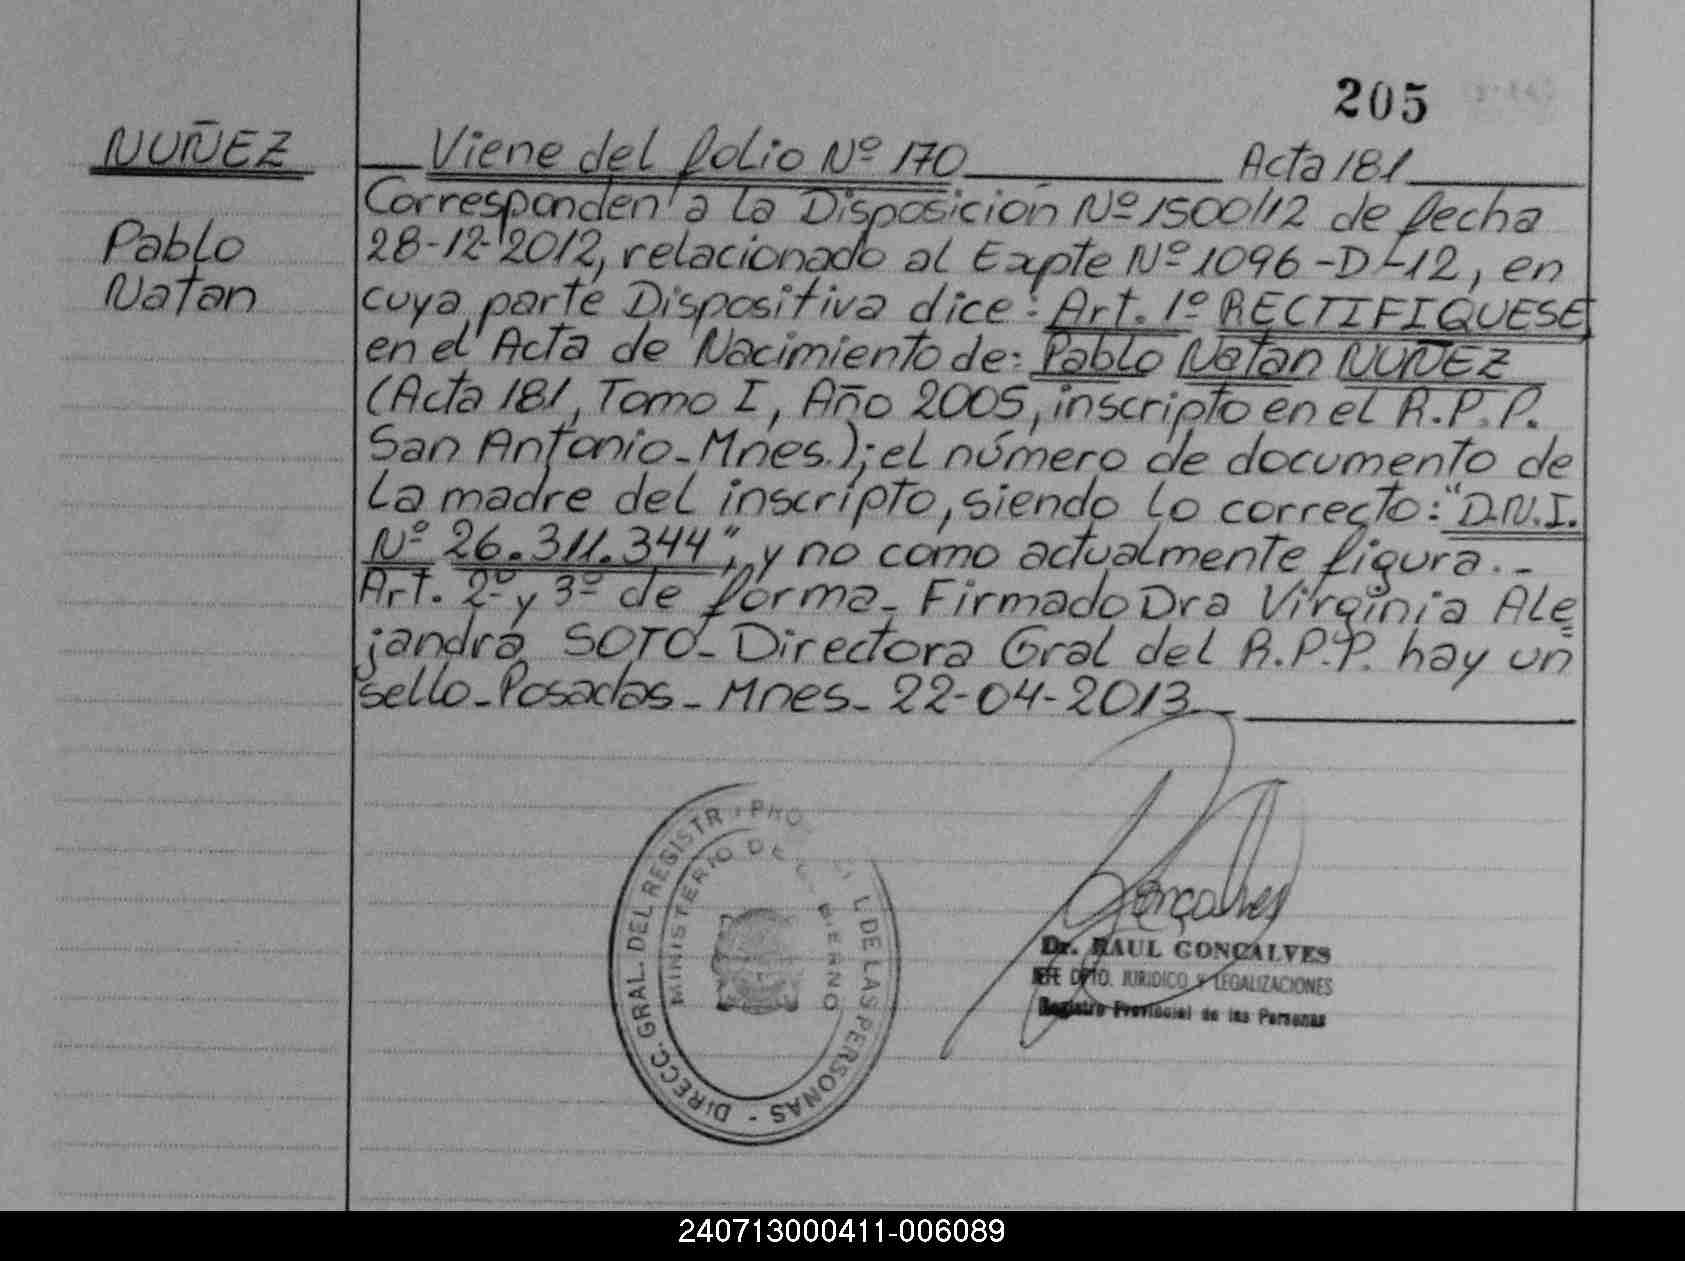 205
NUÑEZ
Pablo
Natan
Viene del folio Nº 170 Acta 181
Corresponden a la Disposición Nº 1500/12 de fecha
28-12-2012, relacionado al Expte Nº 1096-D-12, en
cuya parte Dispositiva dice: Art. 1º RECTIFIQUESE
en el Acta de Nacimiento de: Pablo Natan NUÑEZ
(Acta 181, Tomo I, Año 2005, inscripto en el R.P.P.
San Antonio-Mnes.); el número de documento de
la madre del inscripto, siendo lo correcto: "D.N.I.
Nº 26.311.344", y no como actualmente figura.-
Art. 2º y 3º de forma- Firmado Dra Virginia Ale
jandra SOTO- Directora Gral del R.P.P. hay un
sello-Posadas- Mnes- 22-04-2013
DIRECC. GRAL. DEL REGISTR DE LAS PERSONAS -
MINISTERIO DE
Gonçalves
Dr. RAUL GONÇALVES
JEFE DPTO. JURIDICO Y LEGALIZACIONES
Registro Provincial de las Personas
240713000411-006089